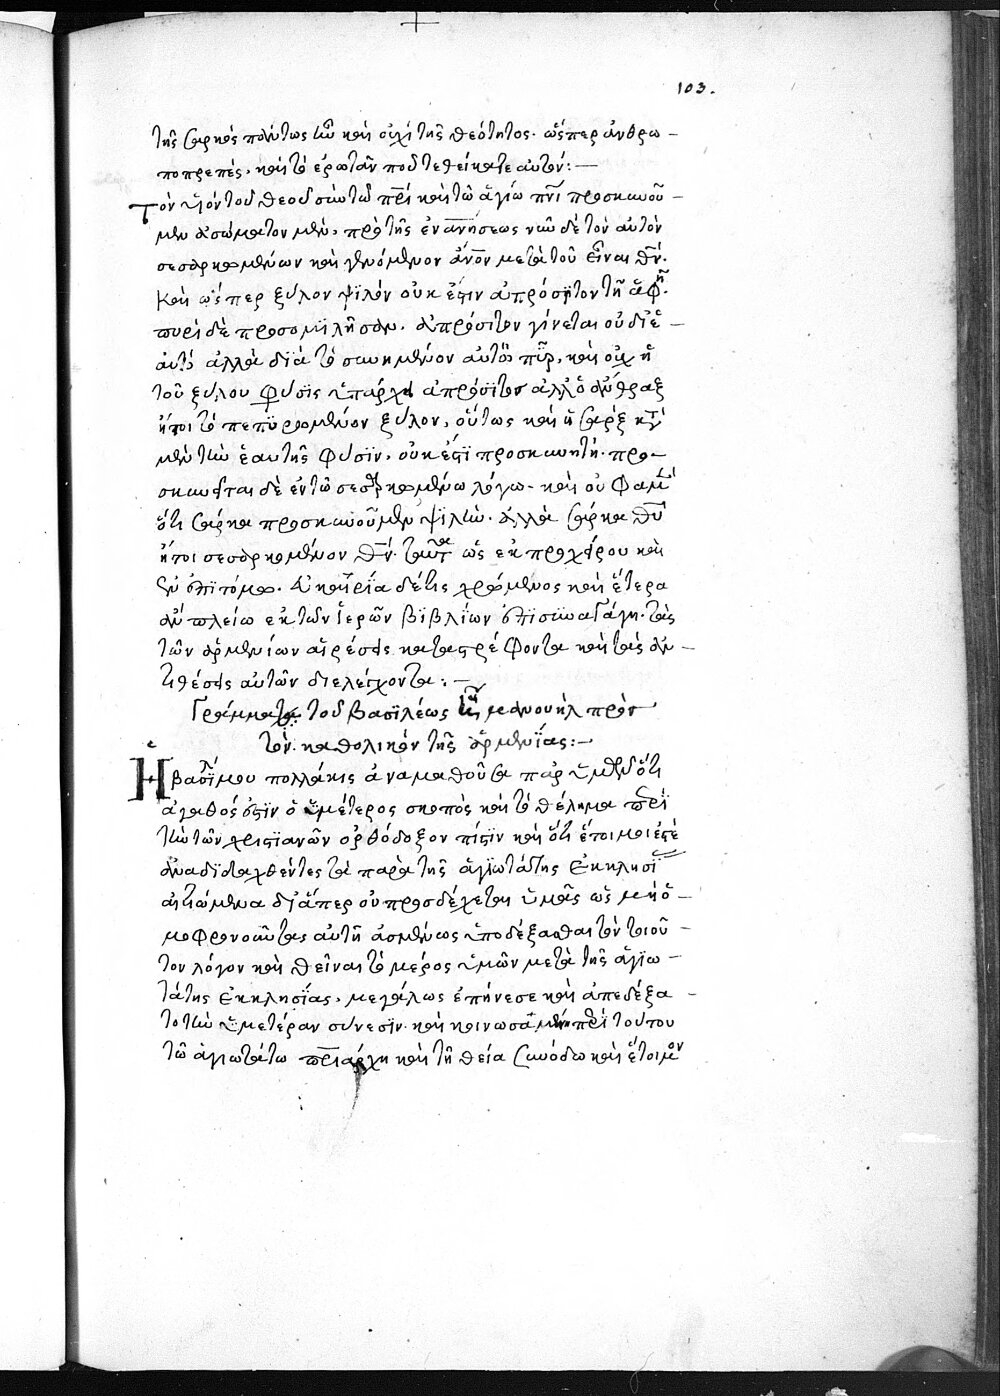 103.
τῆς σαρκὸς πάντως ἦν καὶ οὐχὶ τῆς θεότητος. ὥσπερ ἀνθρω-
ποπρεπές, καὶ τὸ ἐρωτᾶν ποῦ τεθείκατε αὐτόν:—
Τὸν υἱὸν τοῦ θεοῦ σὺν τῷ πρὶ καὶ τῷ ἁγίω πνὶ προσκυνοῦ-
μεν ἀσώματον μὲν, πρὸ τῆς ἐνανήσεως νῦν δὲ τὸν αὐτὸν
σεσαρκωμένον καὶ γενόμενον ἄνον μετὰ τοῦ εἶναι θν.
καὶ ὥσπερ ξύλον ψιλὸν οὐκ ἔστιν ἀπρόσιτον τῇ ἁφῇ.
πυρὶ δὲ προσομιλῆσαν. ἀπρόσιτον γίνεται οὐ δι' ἑ-
αυτὸ ἀλλὰ διὰ τὸ συνημένον αὐτῷ πῦρ, καὶ οὐχ ἡ
τοῦ ξύλου φύσις ὑπάρχει ἀπρόσιτος ἀλλ' ὁ ἄνθραξ
ἤτοι τὸ πεπυρωμένον ξύλον, οὕτως καὶ ἡ σὰρξ κατὰ
μὲν τὴν ἑαυτῆς φύσιν, οὐκ ἔστι προσκυνητή. προ-
σκυνεῖται δὲ ἐν τῷ σεσαρκωμένω λόγω. καὶ οὐ φαμὲν
ὅτι σάρκα προσκυνοῦμεν ψιλήν. ἀλλὰ σάρκα θυ
ἤτοι σεσαρκωμένον θν. ταῦτα ὡς ἐκ προχείρου καὶ
ἐν ἐπιτόμω. εὐκαιρία δέ τις χρώμενος καὶ ἕτερα
ἂν πλείω ἐκ τῶν ἱερῶν βιβλίων ἐπισυναγάγη. τὰς
τῶν ἀρμενίων αἱρέσεις καταστρέφοντα καὶ τὰς ἀν-
τιθέσεις αὐτῶν διελέγχοντα:—
Γράμματα τοῦ βασιλέως κυ μανουὴλ πρὸς
τὸν καθολικὸν τῆς ἀρμενίας:—
Ἡ βασιμου πολλάκις ἀναμαθοῦσα παρ' ὑμῶν ὅτι
ἀγαθός ἐστιν ὁ ὑμέτερος σκοπὸς καὶ τὸ θέλημα περὶ
τὴν τῶν χριστιανῶν ὀρθόδοξον πίστιν καὶ ὅτι ἕτοιμοί ἐστὲ
ἀναδιδαχθέντες τὰ παρὰ τῆς ἁγιωτάτης ἐκκλησι
αἰτιώμενα δι' ἅπερ οὐ προσδέχεται ὑμᾶς ὡς μὴ ὁ-
μοφρονοῦντας αὐτῇ ἀσμένως ὑποδέξασθαι τὸν τοιοῦ-
τον λόγον καὶ θεῖναι τὸ μέρος ὑμῶν μετὰ τῆς ἁγιω-
τάτης ἐκκλησίας, μεγάλως ἐπήνεσε καὶ ἀπεδέξα-
το τὴν ὑμετέραν σύνεσιν. καὶ κοινωσαμένη περὶ τούτου
τῷ ἁγιωτάτω πριάρχη καὶ τῇ θεία συνόδω καὶ ἕτοιμον